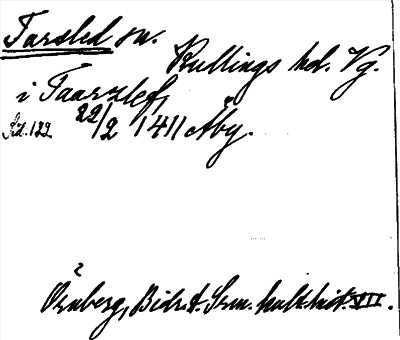 Tarsled sn.
Kullings hd. Vg.
i Taarzlef,
22/2 1411 Åby.
Örnberg, Bidr. t. Sv. kult.hist. VII.